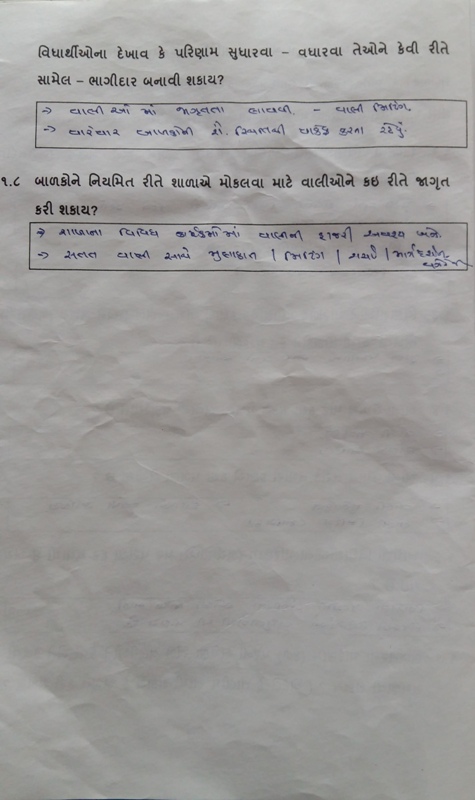 વિધાર્થીઓના દેખાવ કે પરિણામ સુધારવા – વધારવા તેઓને કેવી રીતે
સામેલ – ભાગીદાર બનાવી શકાય?
→ વાલીઓ માં જાગૃતતા લાવવી. – વાલી મિટિંગ.
→ વારંવાર બાળકોની શૈ. સ્થિતિથી વાકેફ કરતા રહેવું.
૧.૮ બાળકોને નિયમિત રીતે શાળાએ મોકલવા માટે વાલીઓને કઇ રીતે જાગૃત
કરી શકાય?
→ શાળાના વિવિધ કાર્યક્રમોમાં વાલીની હાજરી અવશ્ય બને.
→ સતત વાલી સાથે મુલાકાત / મિટિંગ / ચર્ચા / માર્ગદર્શન